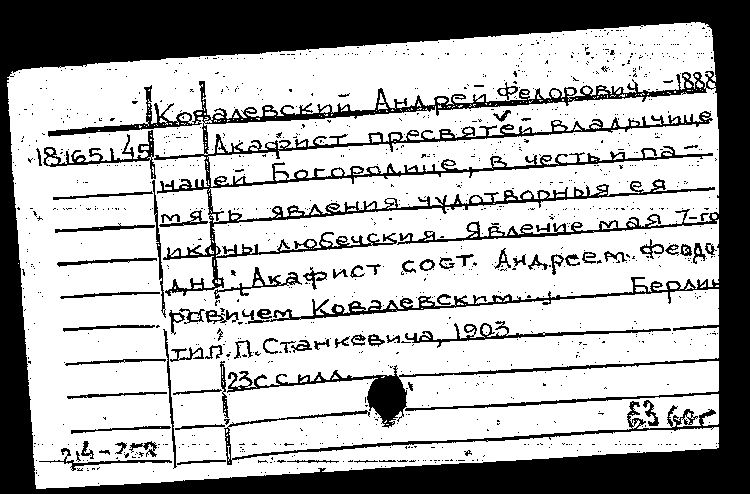 Ковалевский, Андрей Федорович, -1888
18.165.1.45. Акафист пресвятей владычице
нашей Богородице, в честь и па-
мять явления чудотворныя ея
иконы любечския. Явление мая 7-го
дня; Акафист сост. Андреем Феодо-
ровичем Ковалевским...; Берлин
тип. П. Станкевича, 1903.
23с с илл.